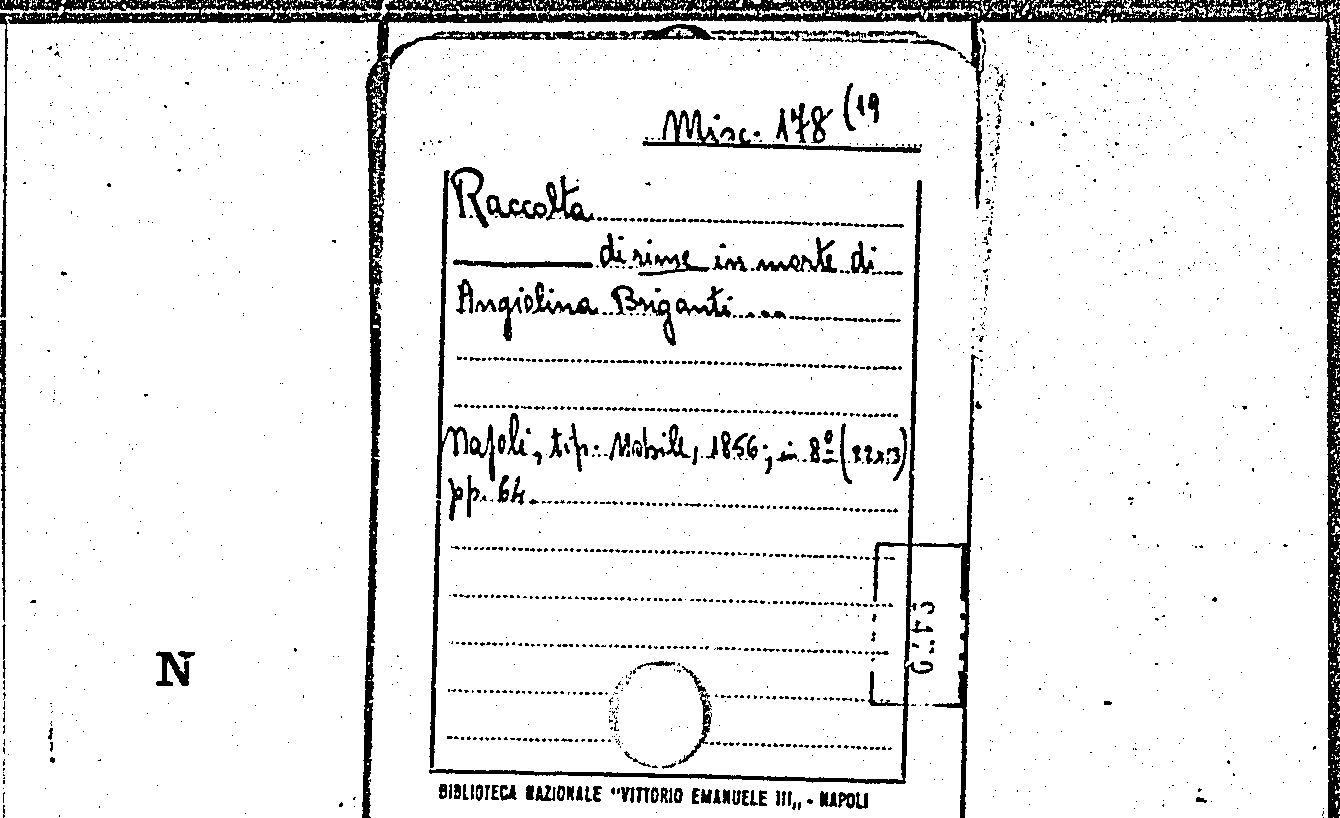 Misc. 178 (19
Raccolta
di rime in morte di
Angiolina Briganti ...
Napoli, tip. Nobile, 1856; in 8º (22x13)
pp. 64.
N
BIBLIOTECA NAZIONALE "VITTORIO EMANUELE III„ - NAPOLI